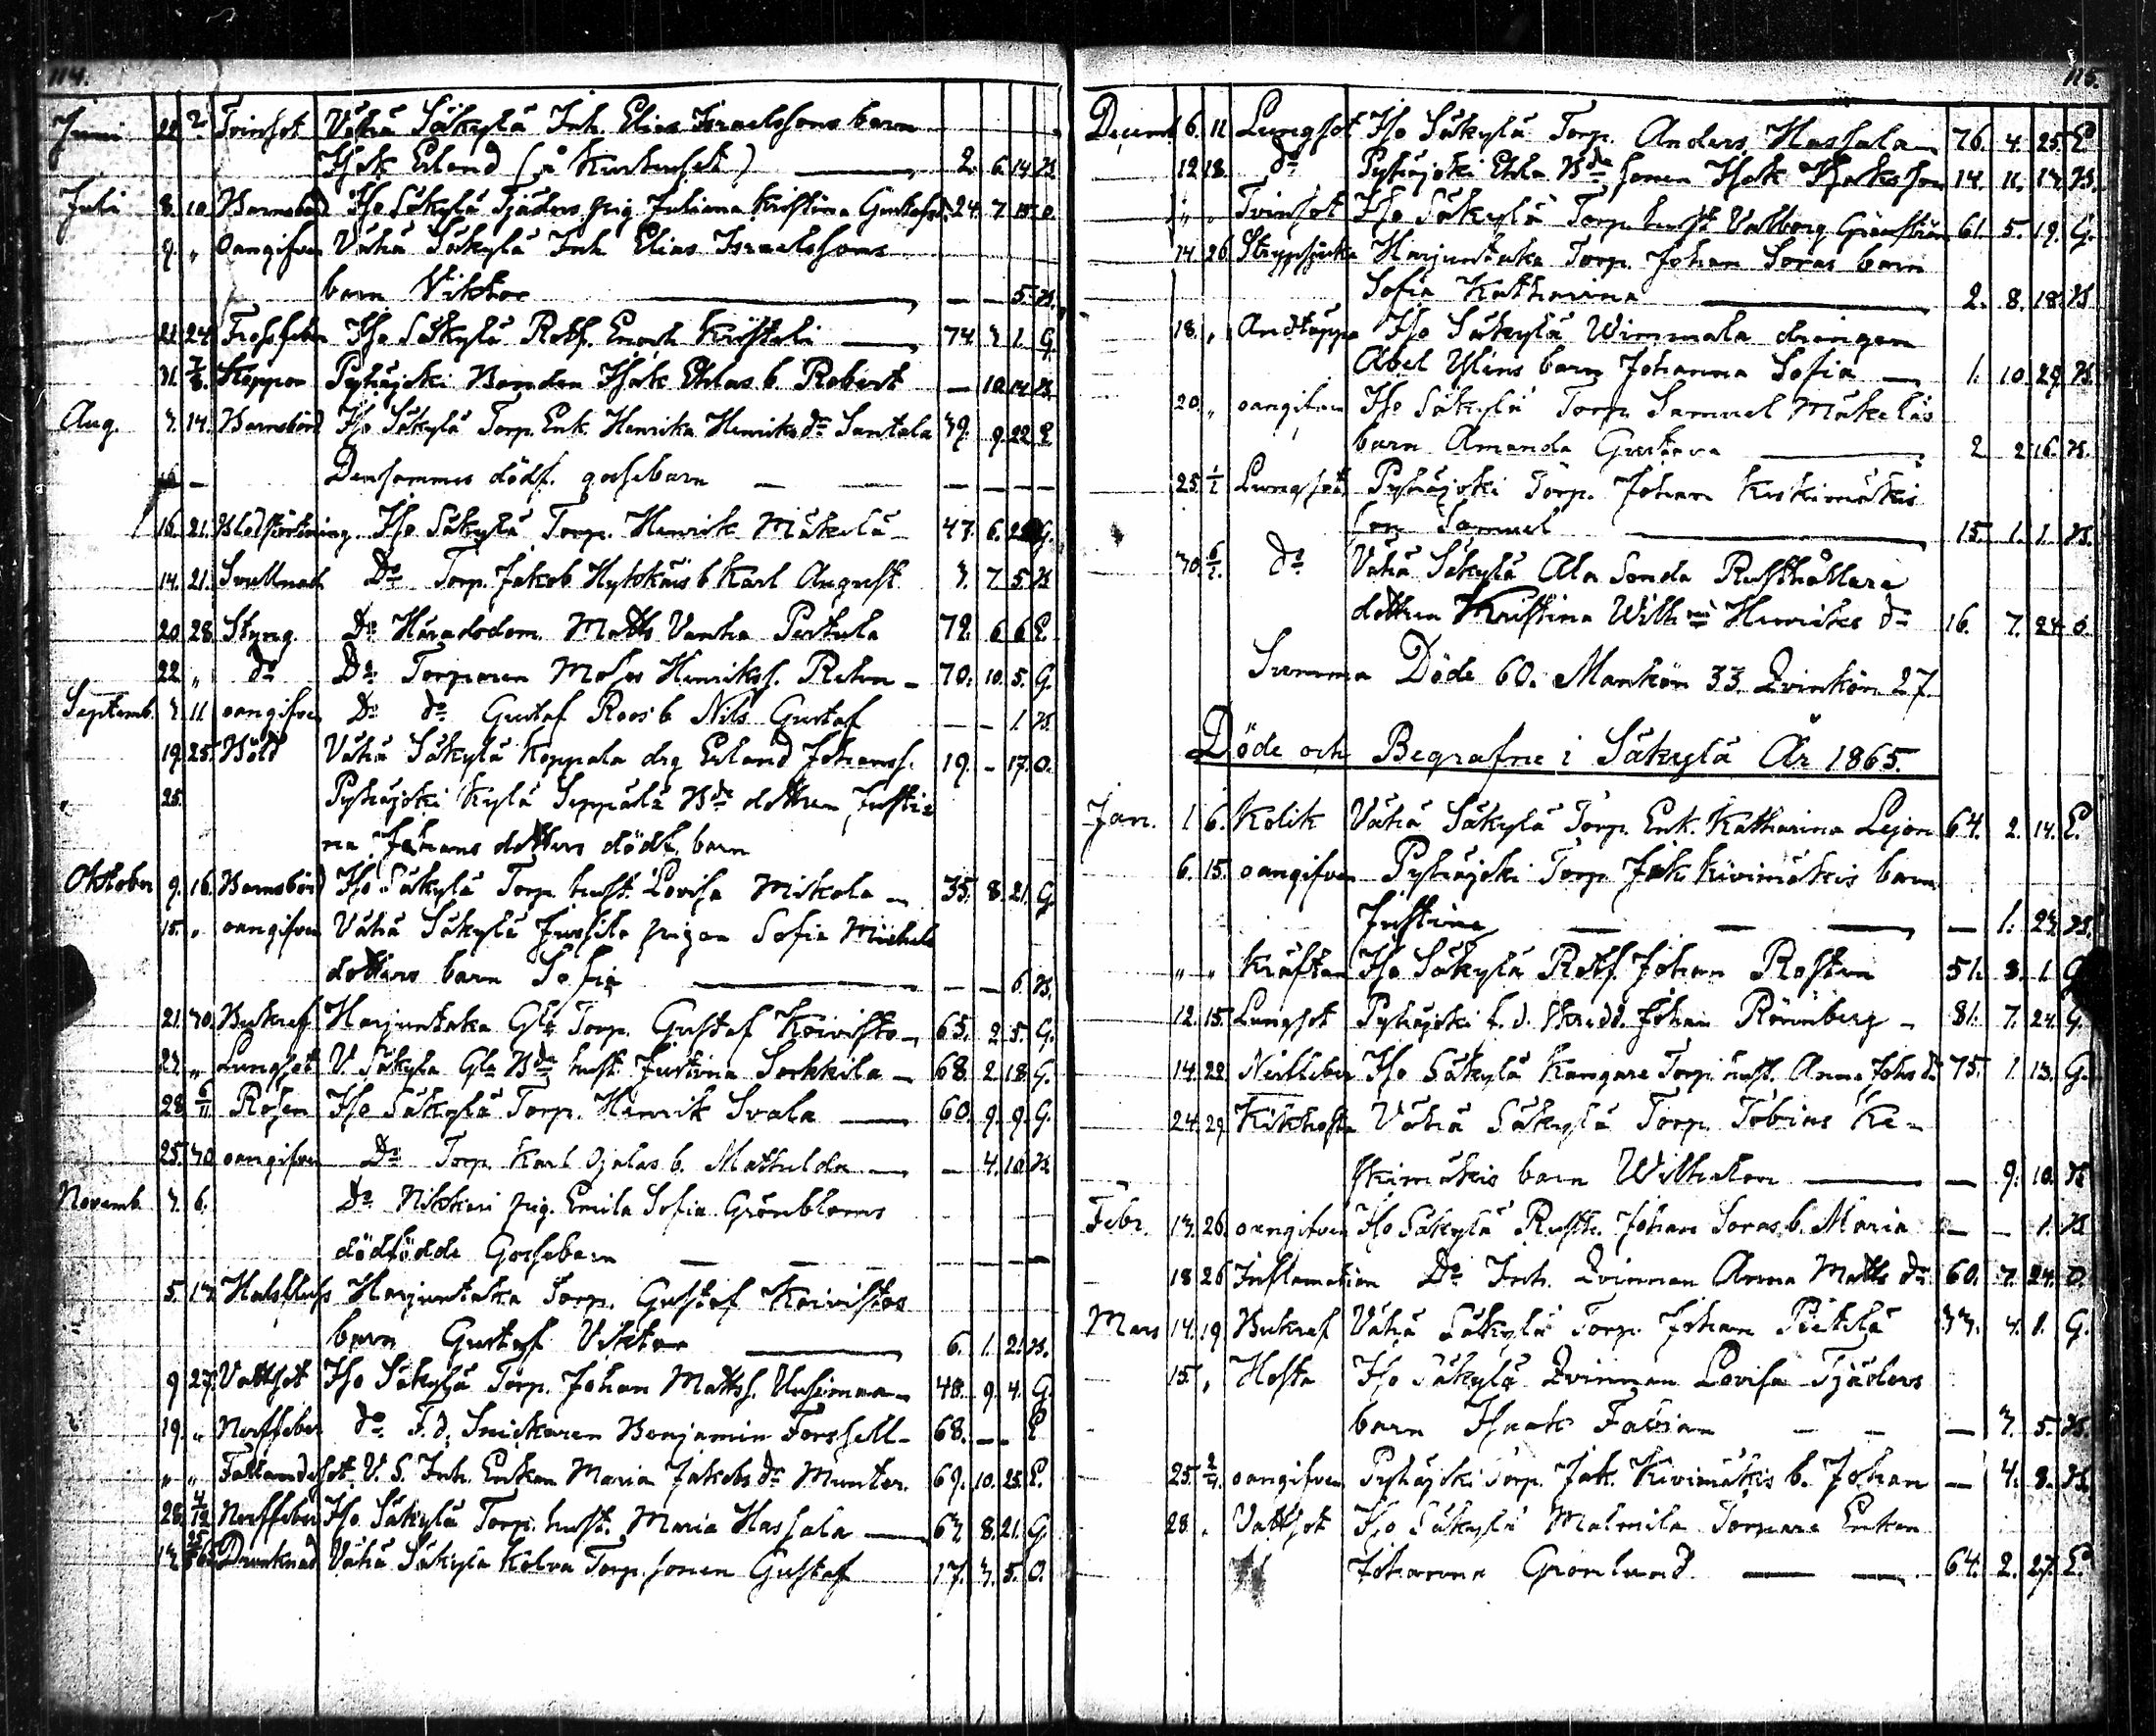 114.
Juni 22. 2 Tvinsot Vähä Säkylä Inh. Elias Israelssons barn
Isak Erland (å Kurhuset) — 2. 6. 14. B.
Juli 8. 10. Barnsbörd Iso Säkylä Tjäders pig. Juliana Kristina Gustafsd. 24. 7. 15. O.
9. „ oangifven Vähä Säkylä Inh. Elias Israelssons
barn Viktor — — — 5. B.
21. 24. Frossfeber Iso Säkylä Rotf. Enoch — 74. 3. 1. G.
31. 7/8. Koppor Pyhäjoki Bonden Isak Ehlas b. Robert — 10. 14. B.
Aug. 3. 14. Barnsbörd Iso Säkylä Torp. Enk. Henrika Henriks dr Santala 39. 9. 22. E.
— Densammes dödf. gossebarn — — — — —
16. 21. Blodstörtning Iso Säkylä Torp. Henrik Mäkelä — 47. 6. G.
14. 21. Svullnad Do Torp. Jakob b. Karl August 3. 7. 5. B.
20. 28. Styng. Do Häradsdom. Matts Vanha Pertula 72. 6. 6. E.
22. „ do Do Torparen Moses Henrikss. Rehn — 70. 10. 5. G.
Septemb. 3. 11. oangifven Do do Gustaf Roos b. Nils Gustaf — — 1. B.
19. 25. Böld Vähä Säkylä Koppala drg. Erland Johanss. 19. — 17. O.
„ 25. Pyhäjoki Kylä Seppälä Bde dottren Justi=
na Johans dotters dödf. barn
Oktober 9. 16. Barnsbörd Iso Säkylä Torp. hust. Lovisa Miskola — 35. 8. 21. G.
15. „ oangifven Vähä Säkylä Jussila pigan Sofia Michels
dotters barn Sofia — — — 6. B.
21. 30. Bukref Harjuntaka Gla Torp. Gustaf Koivisto — 65. 2. 5. G.
22. „ Lungsot V. Säkylä Gla Bde hust. Justina Sorkkila — 68. 2. 18. G.
28. 6/11 Rosen Iso Säkylä Torp. Henrik Svala — 60. 9. 9. G.
25. 30. oangifven Do Torp. Karl Ojalas b. Mathilda — — 4. 10. B.
Novemb. 3. 6. Do Nikkari pig. Emila Sofia Grönbloms
dödfödde Gossebarn — — — — — —
5. 13. Halsfluss Harjuntaka Torp. Gustaf Koivistos
barn Gustaf Viktor — 6. 1. 21. B.
9. 27. Vattsot Iso Säkylä Torp. Johan Mattss. Uusimaa — 48. 9. 4. G.
19. „ Nerffeber do F. d. Snickaren Benjamin Forssell — 68. — — E.
„ „ Fallandesot V. S. Inh. Enkan Maria Jakobs dr Munter. 67. 10. 25. E.
28. 4/12 Nerffeber Iso Säkylä Torp. hust. Maria Hassala — 63. 8. 21. G.
13. Drunknad Vähä Säkylä Kolva Torp. sonen Gustaf 17. 3. 5. O.
115.
Decemb. 6. 11. Lungsot Iso Säkylä Torp. Anders Hassala — 76. 4. 25. E.
12. 18. do Pyhäjoki Ehla Bde sonen Isak Isaksson 14. 11. 13. B.
„ „ Tvinsot Iso Säkylä Torp. hust. Valborg Grönström 61. 5. 19. G.
14. 26. Strypsjuka Harjuntaka Torp. Johan Soras barn
Sofia Katharina — 2. 8. 18. B.
18. „ Andtäppa Iso Säkylä Wimmala drängen
Abel Ylins barn Johanna Sofia — 1. 10. 29. B.
20. „ oangifven Iso Säkylä Torp. Samuel Mäkeläs
barn Amanda Gustava — 2. 2. 16. B.
25. 1/1 Lungsot Pyhäjoki Torp. Johan Keskimäkis
son Samuel — 15. 1. 1. B.
30. 6/1. do Vähä Säkylä Ala Sonda Rusthållare
dottren Kristina Wilhna Henriks dr 16. 7. 24. O.
Summa Döde 60. Mankön 33. Qvinkön 27.
Döde och Begrafne i Säkylä År 1865.
Jan. 1. 6. Kolik Vähä Säkylä Torp. Enk. Katharina Lejon 64. 2. 14. E.
6. 15. oangifven Pyhäjoki Torp. Jak. Kivimäkis barn
Justina — — — — 1. 23. B.
„ „ Kräftan Iso Säkylä Rotf. Johan Rosten 51. 8. 1. G.
12. 15. Lungsot Pyhäjoki f. d. Johan Rönnberg — 81. 7. 24. G.
14. 22. Nerffeber Iso Säkylä Kangare Torp. hust. Anna Johs dr 75. 1. 13. G.
24. 29. Kikhosta Vähä Säkylä Torp. Tobias Ke=
skimäkis barn Wilhelm — — 9. 10. B.
Febr. 13. 26. oangifven Iso Säkylä Rusth. Johan Soras b. Maria — — 1. B.
18. 26. Inflamation Do Inh. Qvinnan Anna Matts dr 60. 7. 24. O.
Mars 14. 19. Bukref Vähä Säkylä Torp. Johan Pietilä 33. 4. 8. G.
15. „ Hosta Iso Säkylä Qvinnan Lovisa Tjäders
barn Isaak Fabian — — — 3. 5. B.
25. 2/4. oangifven Pyhäjoki Torp. Jak. Kivimäkis b. Johan — 4. 8. B.
28. „ Vattsot Iso Säkylä Malmila Torpare Enkan
Johanna Grönlund. — — 64. 2. 27. E.